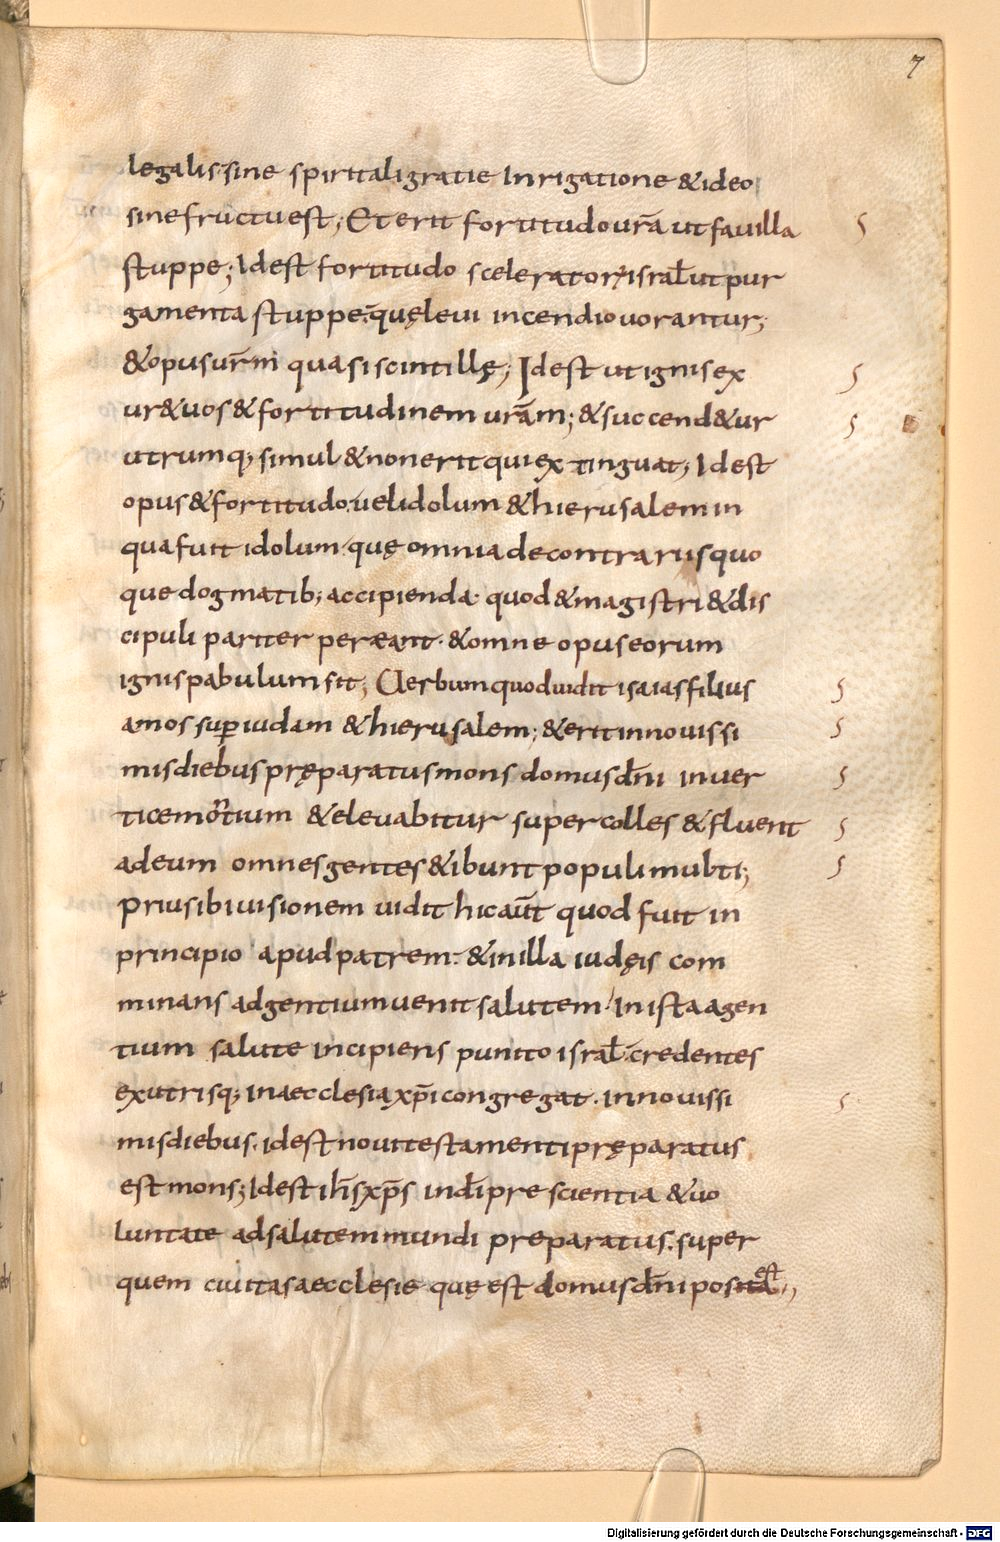 7
legalis· sine spiritali gratie Inrigatione & ideo
sine fructu est; Et erit fortitudo ur̄a ut fauilla
stuppe; Idest fortitudo sceleratorꝝ israł ut pur
gamenta stuppe· quę leui incendio uorantur;
& opus ur̄m quasi scintillę; Idest ut ignis ex
ur&uos & fortitudinem urām; & succend&ur
utrumq; simul & non erit qui extinguat; Idest
opus & fortitudo· uel idolum & hierusalem in
qua fuit idolum· quę omnia de contrariis quo
que dogmatib; accipienda· quod & magistri & dis
cipuli pariter pereant· & omne opus eorum
ignis pabulum sit; Uerbum quod uidit isaias filius
amos sup̄ iudam & hierusalem; & erit in nouissi
mis diebus pręparatus mons domus dn̄i in uer
tice montium & eleuabitur super colles & fluent
ad eum omnes gentes & ibunt populi multi;
Prius ibi uisionem uidit hic aūt quod fuit in
principio apud patrem· & in illa iudęis com
minans ad gentium uenit salutem· In ista a gen
tium salute incipiens punito israł· credentes
ex utrisq; in aecclesia xp̄i congregat· in nouissi
mis diebus· idest noui testamenti pręparatus
est mons; Idest ih̄s xp̄s in dī prescientia & uo
luntate ad salutem mundi preparatus· super
quem ciuitas aecclesie quę est domus dn̄i posita est;
Digitalisierung gefördert durch die Deutsche Forschungsgemeinschaft - DFG